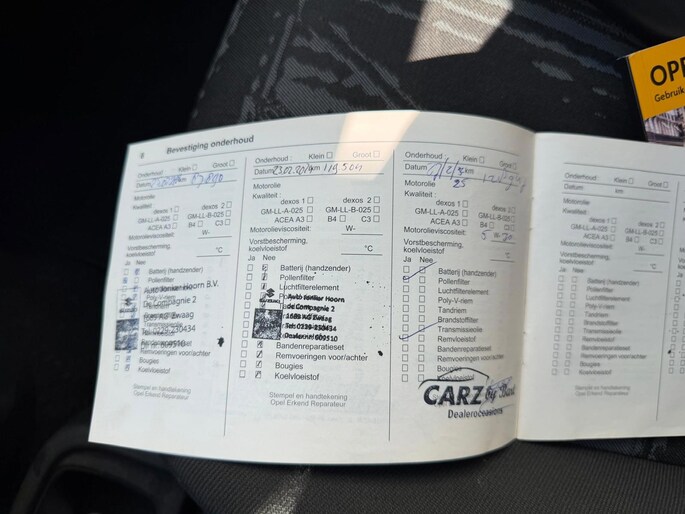 8 Bevestiging onderhoud
Onderhoud : Klein Groot
Datum km
Motorolie
Kwaliteit : dexos 1 dexos 2
GM-LL-A-025 GM-LL-B-025
ACEA A3 B4 C3
Motorolieviscositeit: W-
Vorstbescherming, koelvloeistof °C
Ja Nee
Batterij (handzender)
Pollenfilter
Auto Jonker Hoorn B.V.
De Compagnie 2
Poly-V-riem
1689 AG Zwaag
Remvoeringen voor/achter
Bougies
Koelvloeistof
Stempel en handtekening
Opel Erkend Reparateur
Onderhoud : Klein Groot
Datum 23.02.2024 km 119501
Motorolie
Kwaliteit : dexos 1 dexos 2
GM-LL-A-025 GM-LL-B-025
ACEA A3 B4 C3
Motorolieviscositeit: W-
Vorstbescherming, koelvloeistof °C
Ja Nee
Batterij (handzender)
Pollenfilter
Luchtfilterelement
SUZUKI Auto Jonker Hoorn
de Compagnie 2
1689 AG Zwaag
Tel: 0229-230434
Dealer nr: 609510
Bandenreparatieset
Remvoeringen voor/achter
Bougies
Koelvloeistof
Stempel en handtekening
Opel Erkend Reparateur
Onderhoud : Klein Groot
Datum km
Motorolie 25
Kwaliteit :
dexos 1 dexos 2
GM-LL-A-025 GM-LL-B-025
ACEA A3 B4 C3
Motorolieviscositeit: 5 W-30
Vorstbescherming, koelvloeistof °C
Ja Nee
Batterij (handzender)
Pollenfilter
Luchtfilterelement
Poly-V-riem
Tandriem
Brandstoffilter
Transmissieolie
Remvloeistof
Bandenreparatieset
Remvoeringen voor/achter
Bougies
Koelvloeistof
CARZ by Bart
Dealeroccasions
Onderhoud : Klein Groot
Datum km
Motorolie
Kwaliteit :
dexos 1 dexos 2
GM-LL-A-025 GM-LL-B-025
ACEA A3 B4 C3
Motorolieviscositeit: W-
Vorstbescherming, koelvloeistof °C
Ja Nee
Batterij (handzender)
Pollenfilter
Luchtfilterelement
Poly-V-riem
Tandriem
Brandstoffilter
Transmissieolie
Remvloeistof
Bandenreparatieset
Remvoeringen voor/achter
Bougies
Koelvloeistof
Stempel en handtekening
Opel Erkend Reparateur
OPE
Gebruik